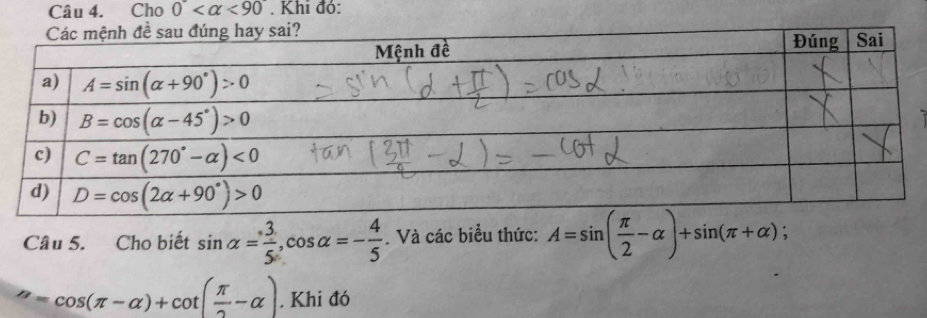 Câu 4. Cho 0° < α < 90°. Khi đó:
Các mệnh đề sau đúng hay sai?
Mệnh đề Đúng Sai
a) A = sin(α + 90°) > 0 = sin (α + π/2) = cos α ! X
b) B = cos(α − 45°) > 0 X
c) C = tan(270° − α) < 0 tan (3π/2 − α) = − cot α X
d) D = cos(2α + 90°) > 0
Câu 5. Cho biết sin α = 3/5, cos α = −4/5. Và các biểu thức: A = sin(π/2 − α) + sin(π + α);
= cos(π − α) + cot(π/2 − α). Khi đó